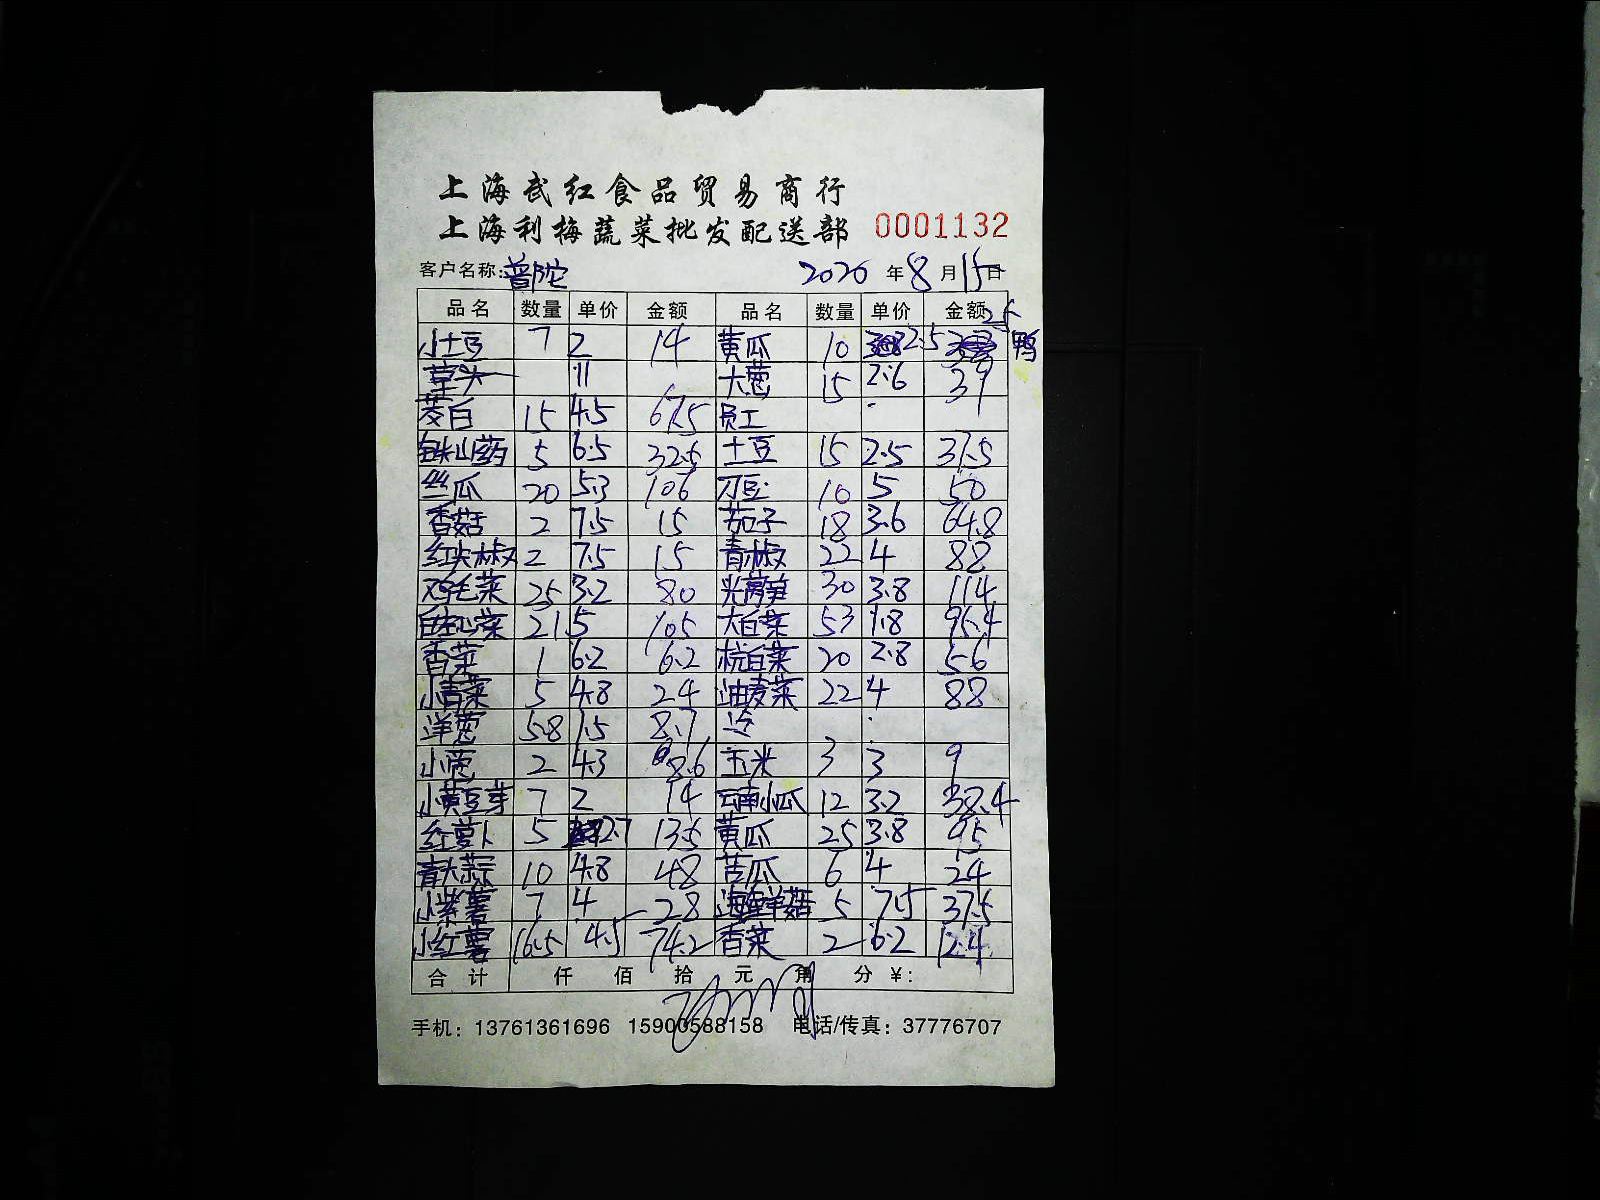 上海武红食品贸易商行
上海利梅蔬菜批发配送部 0001132
客户名称:普陀 2020年8月15日
品名 数量 单价 金额 品名 数量 单价 金额
25
小土豆 7 2 14 黄瓜 10 2.5 鸭
草头 11 大葱 15 2.6 39
茭白 15 4.5 67.5 员工
铁山药 5 6.5 32.5 土豆 15 2.5 37.5
丝瓜 20 5.3 106 刀豆 10 5 50
香菇 2 7.5 15 茄子 18 3.6 64.8
红尖椒 2 7.5 15 青椒 22 4 88
鸡毛菜 25 3.2 80 光莴笋 30 3.8 114
21 5 105 大白菜 53 1.8 95.4
香菜 1 6.2 6.2 杭白菜 20 2.8 56
小青菜 5 4.8 24 油麦菜 22 4 88
洋葱 5.8 1.5 8.7
小葱 2 4.3 8.6 玉米 3 3 9
小黄豆芽 7 2 14 云南小瓜 12 3.2 38.4
红萝卜 5 2.7 13.5 黄瓜 25 3.8 95
青大蒜 10 4.8 48 苦瓜 6 4 24
小紫薯 7 4 28 海鲜菇 5 7.5 37.5
小红薯 16.5 4.5 74.2 香菜 2 6.2 12.4
合计 仟 佰 拾 元 角 分 ¥:
手机: 13761361696 15900588158 电话/传真: 37776707